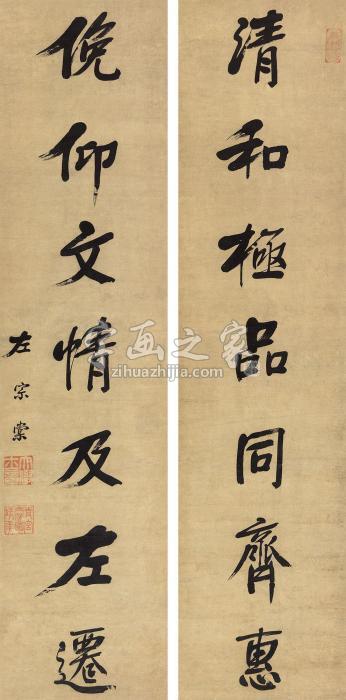 清和極品同齊惠
俛仰文情及左遷
左宗棠
字画之家
zihuazhijia.com